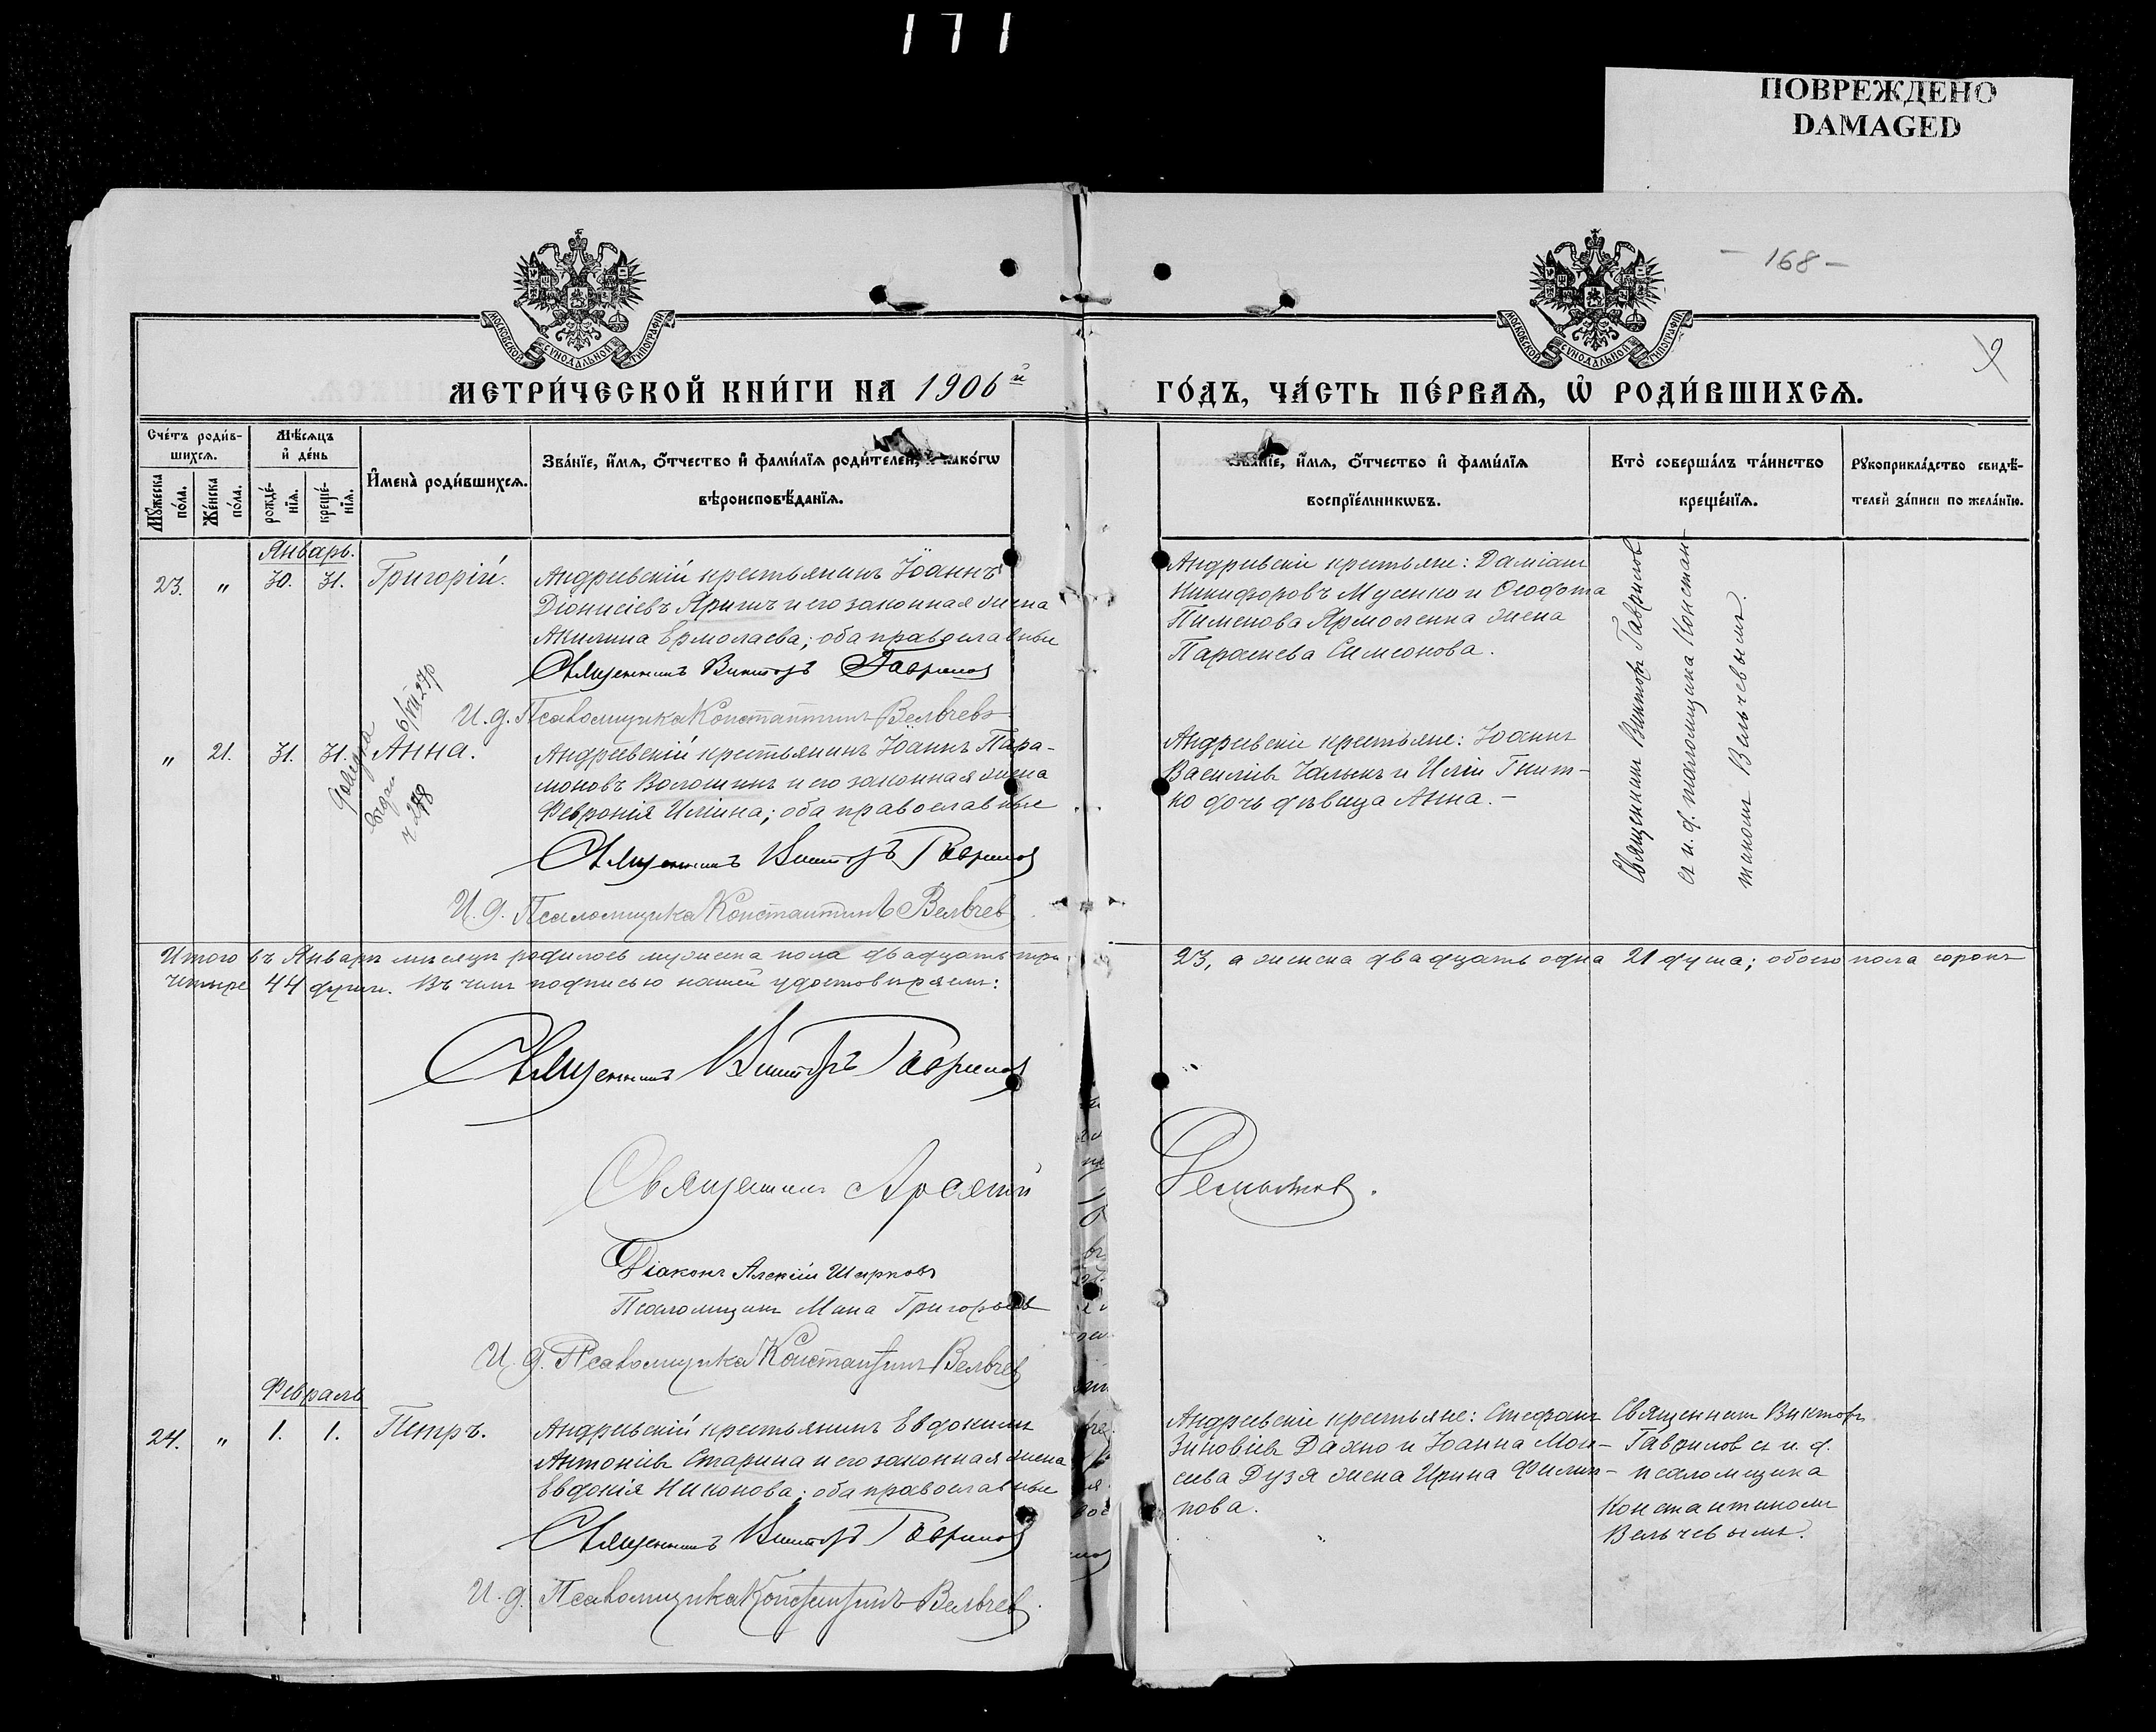 171
ПОВРЕЖДЕНО
DAMAGED
— 168 —
МОСКОВСКОЙ СѴНОДАЛЬНОЙ ТИПОГРАФІИ
МОСКОВСКОЙ СѴНОДАЛЬНОЙ ТИПОГРАФІИ
МЕТРИ́ЧЕСКОЙ КНИ́ГИ НА 1906й
ГО́ДЪ, ЧА́СТЬ ПЕ́РВАѦ, Ѡ҆ РОДИ́ВШИХСѦ.
Сче́тъ роди́в-
шихсѧ.
Мꙋжеска по́ла.
Же́нска по́ла.
Мѣ́сѧцъ
и҆ де́нь
рожде́-
нїѧ.
креще́-
нїѧ.
И҆мена̀ роди́вшихсѧ.
Зва́нїе, и҆́мѧ, ѻ҆́тчество и҆ фами́лїѧ роди́телей, како́гѡ
вѣроисповѣ́данїѧ.
Зва́нїе, и҆́мѧ, ѻ҆́тчество и҆ фами́лїѧ
воспрїе́мникѡвъ.
Кто̀ соверша́лъ та́инство
креще́нїѧ.
Рꙋкоприкла́дство свидѣ́-
телей за́писи по жела́нїю.
Январь.
23. " 30. 31. Григорій.
Андреевскій крестьянинъ Іоаннъ
Діонисіевъ Яригъ и его законная жена
Акилина Ермолаева; оба православные
Священникъ Викторъ Гавриловъ
И. д. Псаломщика Константинъ Вельчевъ
Андреевскіе крестьяне: Даміанъ
Никифоровъ Мусенко и Ѳеофота
Пименова Ярмоленка жена
Параскева Симеонова.
Священникъ Викторъ Гавриловъ
съ и. д. псаломщика Констан-
тиномъ Вельчевымъ.
" 21. 31. 31. Анна.
6/VII 27р
ч 278
Андреевскій крестьянинъ Іоаннъ Пара-
моновъ Волошинъ и его законная жена
Февронія Иліина; оба православные
Священникъ Викторъ Гавриловъ
И. д. Псаломщика Константинъ Вельчев
Андреевскіе крестьяне: Іоаннъ
Василіевъ Чалыкъ и Иліи Гнит-
ко дочь дѣвица Анна. –
Итого въ Январѣ мѣсяцѣ родилось мужеска пола двадцать три 23, а женска двадцать одна 21 душа; обоего пола сорокъ
четыре 44 души. Въ чемъ подписью нашей удостовѣряемъ:
Священникъ Викторъ Гавриловъ
Священникъ Арсеній
Діаконъ Алексій Шарповъ
Псаломщикъ Мина Григорьевъ
И. д. Псаломщика Константинъ Вельчев
Февраль
24. " 1. 1. Петръ.
Андреевскій крестьянинъ Евдокимъ
Антоніевъ Старина и его законная жена
Евдокія Никонова; оба православные
Священникъ Викторъ Гавриловъ
И. д. Псаломщика Константинъ Вельчев.
Андреевскіе крестьяне: Стефанъ
Зиновіевъ Дахно и Іоанна Мои-
сеева Дузя жена Ирина Филип-
пова.
Священникъ Викторъ
Гавриловъ съ и. д.
псаломщика
Константиномъ
Вельчевымъ.